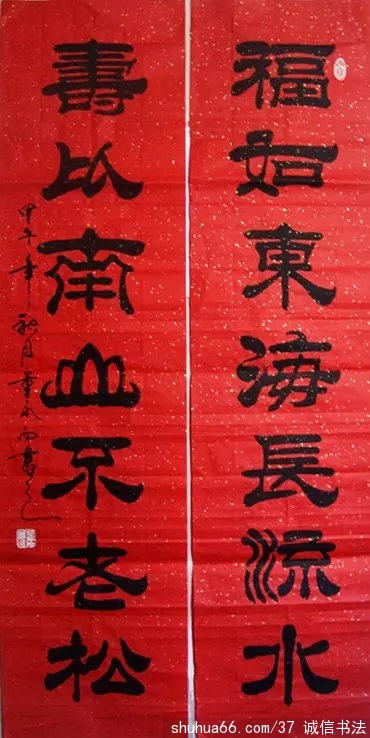 福如東海長流水
壽比南山不老松
甲午年秋月
shuhua66.com/37 诚信书法